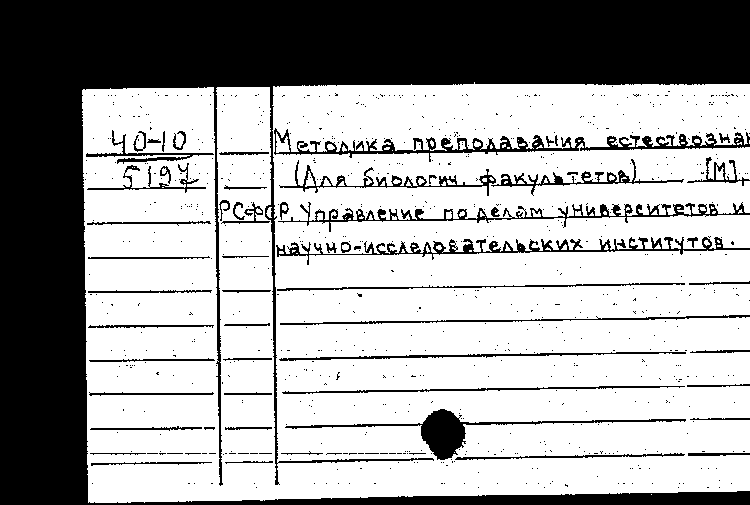 40-10 Методика преподавания естествознан
5197 (Для биологич. факультетов) [М],
РСФСР. Управление по делам университетов и
научно-исследовательских институтов.